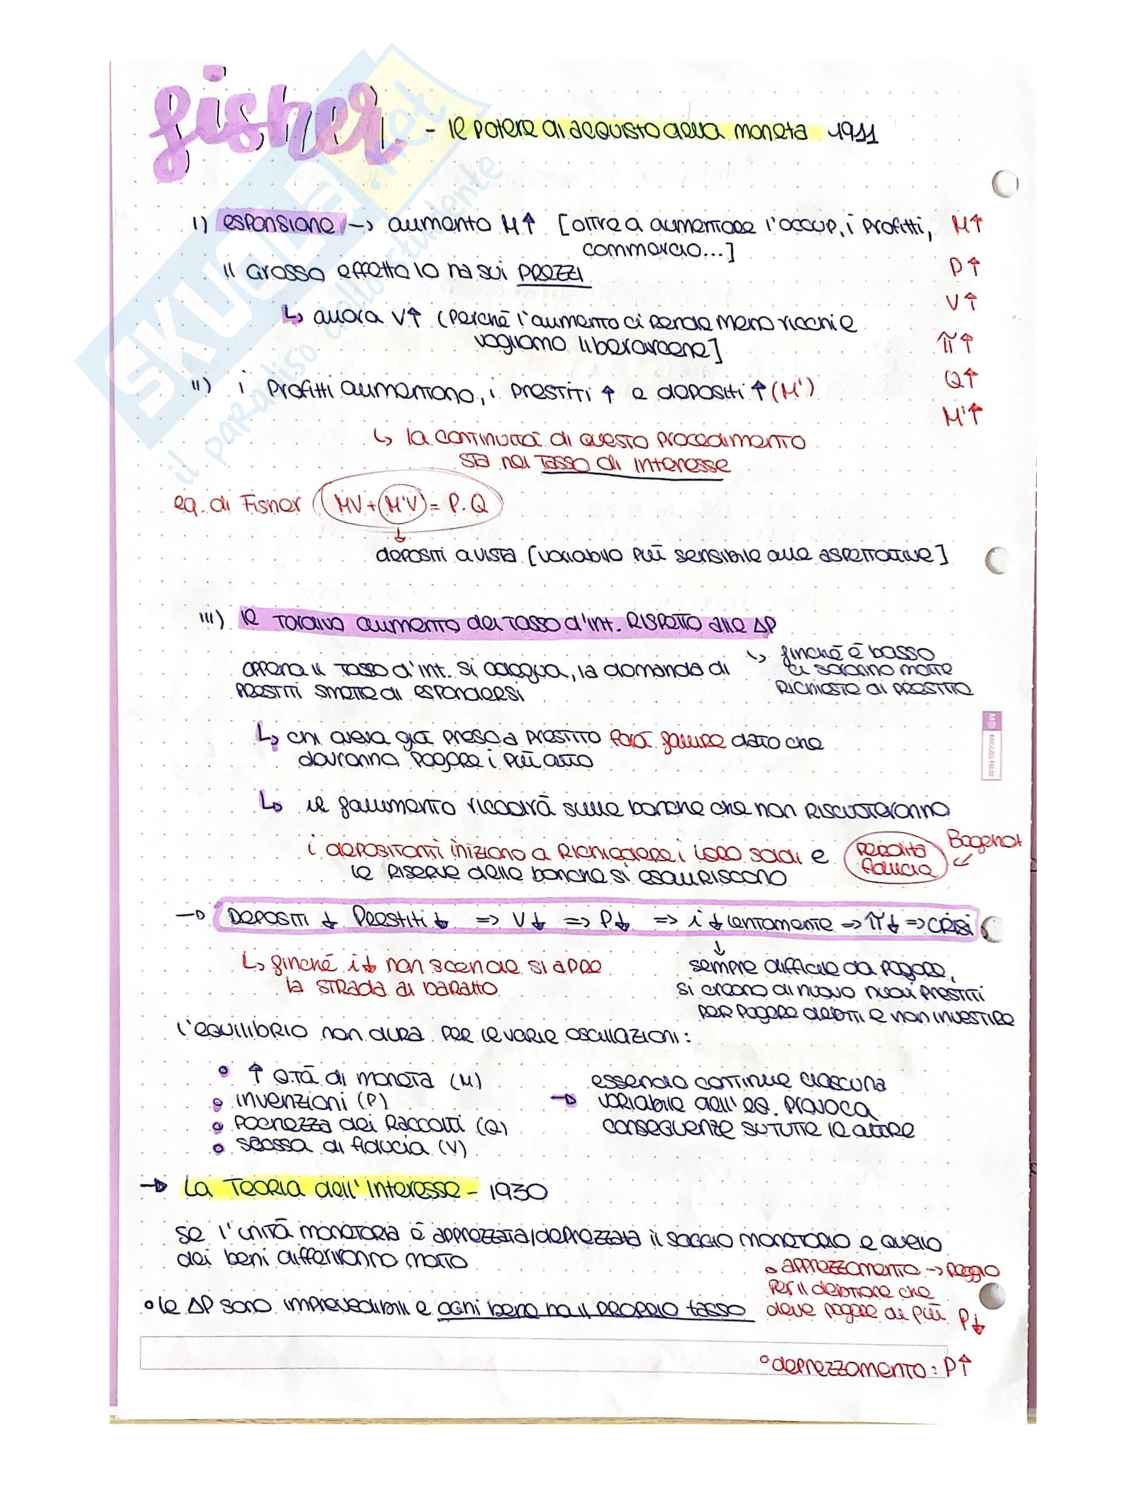 fisher - Il potere di acquisto della moneta 1911
SKUOLA.net
il paradiso dello studente
I) espansione → aumento M↑ [oltre a aumentare l'occup, i profitti, commercio...]
M↑
P↑
V↑
π↑
Q↑
M'↑
Il grosso effetto lo ha sui PREZZI
↳ allora V↑ (perché l'aumento ci rende meno ricchi e
vogliamo liberarcene]
II) i profitti aumentano, i prestiti ↑ e depositi ↑ (M')
↳ la continuità di questo procedimento
sta nel tasso di interesse
eq. di Fisher MV+M'V = P.Q
depositi a vista [variabile più sensibile alle aspettative]
III) Il tardivo aumento del tasso d'int. RISPETTO alle ΔP
↳ finché è basso
ci saranno molte
richieste di prestito
appena il tasso d'int. si adegua, la domanda di
prestiti smette di espandersi
↳ chi aveva già preso a prestito farà fallire dato che
dovranno pagare i più alto
↳ il fallimento ricadrà sulle banche che non riscuoteranno
i depositanti iniziano a richiedere i loro soldi e perdita fiducia
Bagehot
le riserve delle banche si esauriscono
→ Depositi ↓ Prestiti ↓ => V↓ => P↓ => i↓ lentamente => π↓ => crisi
↳ finché i↓ non scende si apre
la strada al baratto
sempre difficile da pagare,
si creano di nuovo nuovi prestiti
per pagare debiti e non investire
l'equilibrio non dura per le varie oscillazioni:
• ↑ q.tà di moneta (M)
• invenzioni (P)
• pochezza dei raccolti (Q)
• scossa di fiducia (V)
→ essendo continue ciascuna
variabile dell'eq. provoca
conseguenze su tutte le altre
→ La Teoria dell'Interesse - 1930
se l'unità monetaria è apprezzata/deprezzata il saggio monetario e quello
dei beni differiranno molto
• apprezzamento → peggio
per il debitore che
deve pagare di più P↓
• le ΔP sono imprevedibili e ogni bene ha il proprio tasso
• deprezzamento: P↑